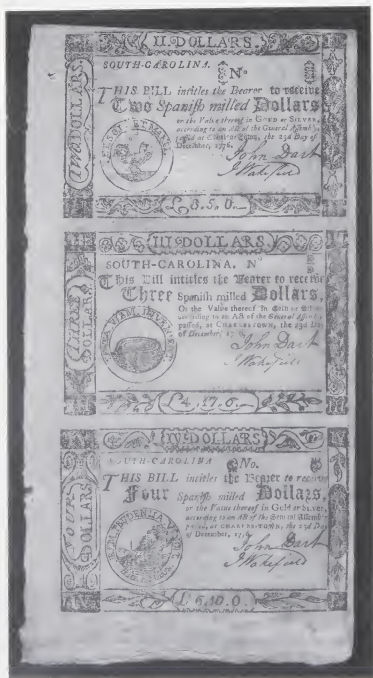 II. DOLLARS.
TWO DOLLARS.
SOUTH-CAROLINA.
No
THIS BILL intitles the Bearer to receive
Two Spanish milled Dollars
or the Value thereof in GOLD or SILVER,
according to an Act of the General Assembly,
passed at CHARLES-TOWN, the 23d Day of
December, 1776.
John Dart
J Wakefield
£3.5.0.
III DOLLARS.
THREE DOLLARS.
SOUTH-CAROLINA, No
This Bill intitles the Bearer to receive
Three Spanish milled Dollars,
Or the Value thereof in Gold or Silver
according to an Act of the General Assembly,
passed, at CHARLESTOWN, the 23d Day
of December, 1776
John Dart
J Wakefield
£4.17.6.
IV DOLLARS
FOUR DOLLARS.
SOUTH-CAROLINA
No.
THIS BILL intitles the Bearer to receive
Four Spanish milled Dollars,
or the Value thereof in Gold or SILVER,
according to an Act of the General Assembly
passed, at CHARLES-TOWN, the 23d Day
of December, 177
John Dart
J Wakefield
£6.10.0.